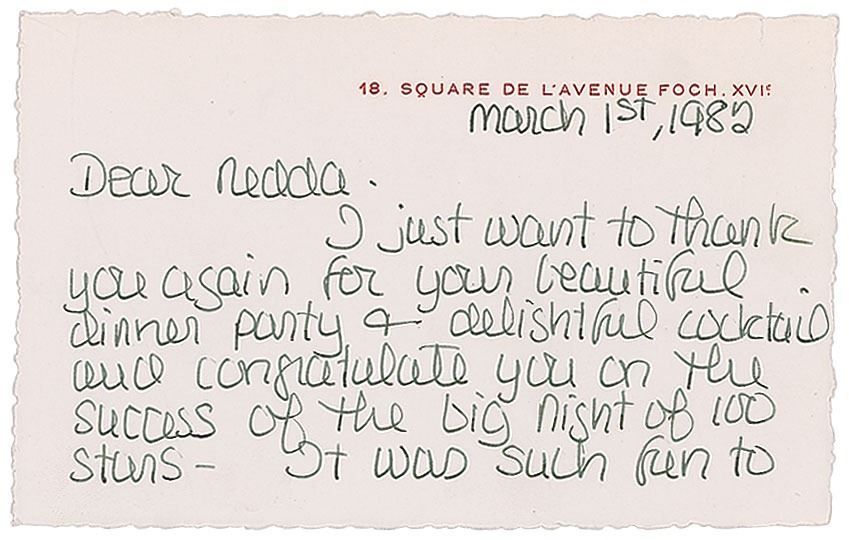 18. SQUARE DE L'AVENUE FOCH. XVIe
March 1st, 1982
Dear Nedda.
I just want to thank
you again for your beautiful
dinner party & delightful cocktail
and congratulate you on the
success of the big night of 100
stars - It was such fun to